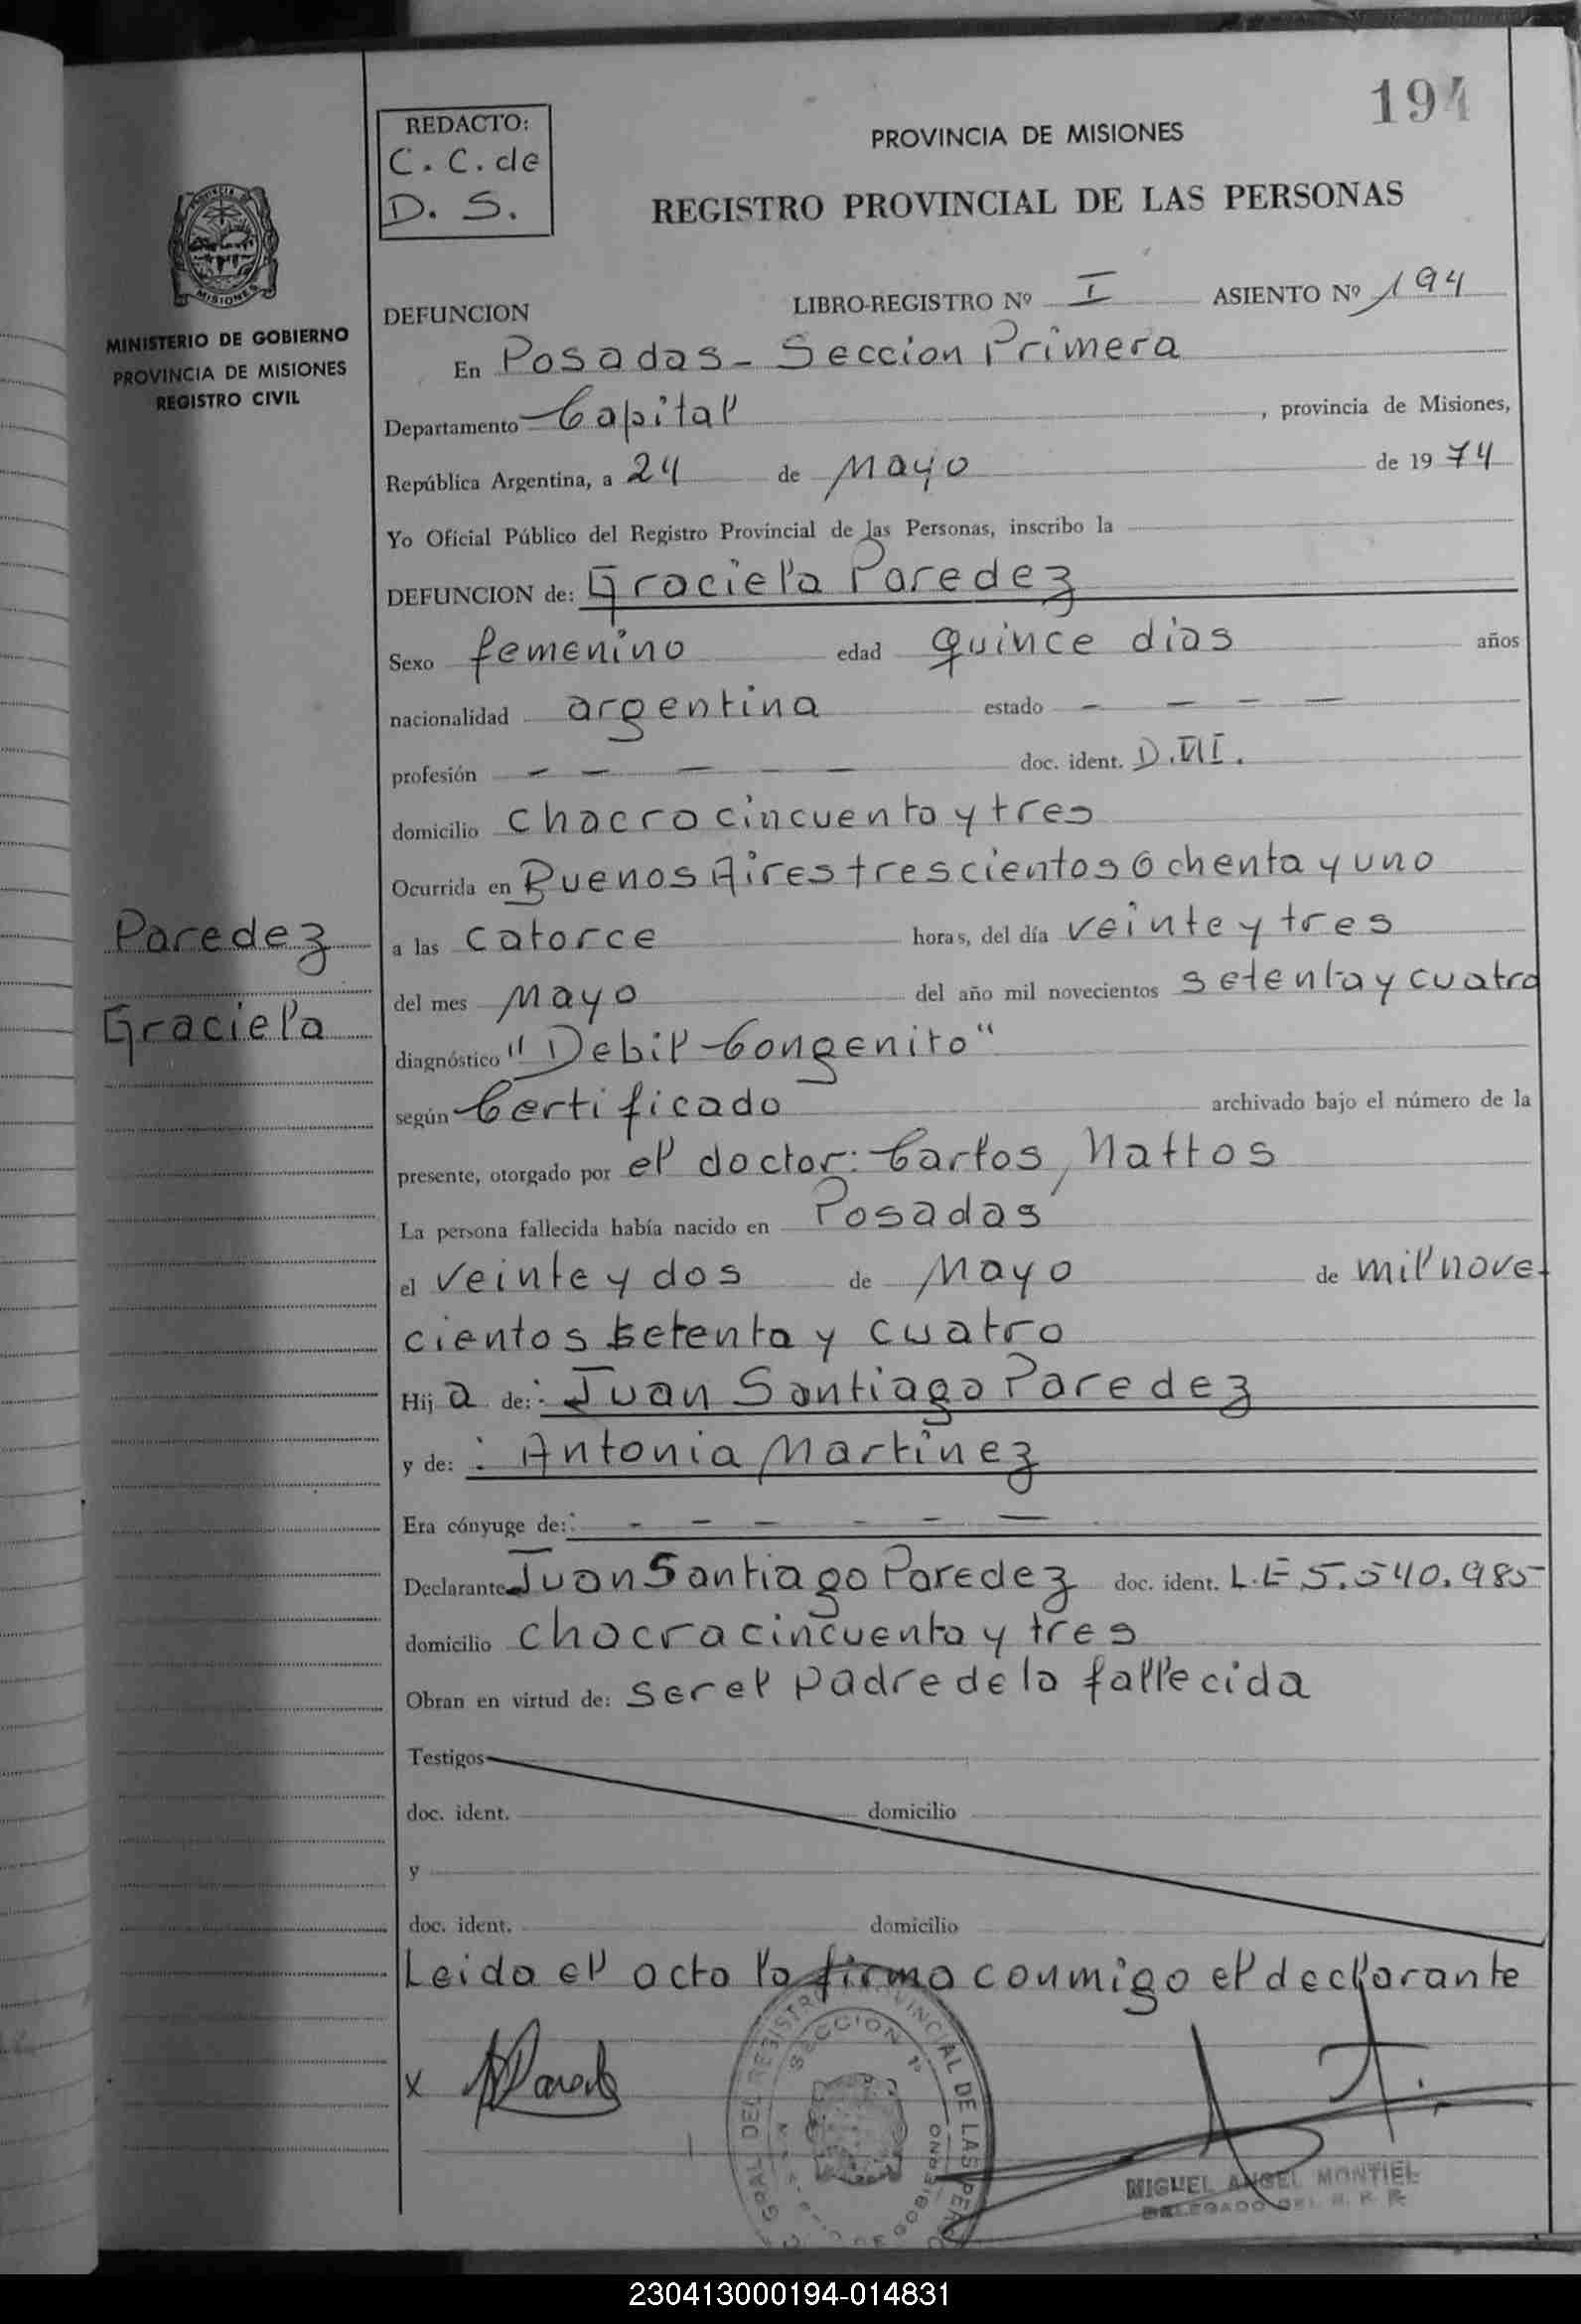 194
REDACTO:
C. C. de
D. S.
PROVINCIA DE MISIONES
REGISTRO PROVINCIAL DE LAS PERSONAS
MISIONES
MINISTERIO DE GOBIERNO
PROVINCIA DE MISIONES
REGISTRO CIVIL
DEFUNCION LIBRO-REGISTRO Nº I ASIENTO Nº 194
En Posadas - Seccion Primera
Departamento Capital, provincia de Misiones,
República Argentina, a 24 de Mayo de 1974
Yo Oficial Público del Registro Provincial de las Personas, inscribo la
DEFUNCION de: Graciela Paredez
Sexo femenino edad quince dias años
nacionalidad argentina estado - - - -
profesión - - - - - doc. ident. D.
domicilio chacra cincuenta y tres
Ocurrida en Buenos Aires trescientos Ochenta y uno
a las catorce horas, del día veinte y tres
del mes Mayo del año mil novecientos setenta y cuatro
diagnóstico "Debil Congenito"
según Certificado archivado bajo el número de la
presente, otorgado por el doctor: Carlos, Mattos
La persona fallecida había nacido en Posadas
el veinte y dos de Mayo de mil nove-
cientos setenta y cuatro
Hija de: Juan Santiago Paredez
y de: : Antonia Martinez
Era cónyuge de: - - - - - -
Declarante Juan Santiago Paredez doc. ident. L.E 5.540.985
domicilio chacra cincuenta y tres
Obran en virtud de: ser el padre de la fallecida
Testigos
doc. ident. domicilio
y
doc. ident. domicilio
Leida el acta la firma conmigo el declarante
Paredez
Graciela
x
SECCION 1ª
MIGUEL ANGEL MONTIEL
DELEGADO DEL R. P. P.
230413000194-014831